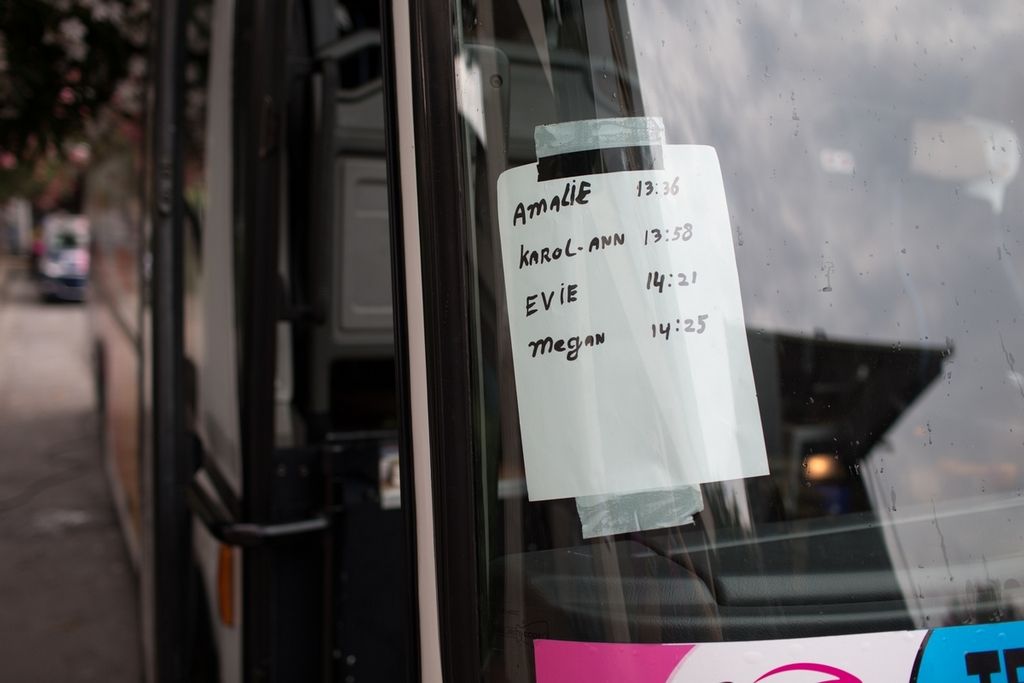 AMALIE 13:36
KAROL-ANN 13:58
EVIE 14:21
megan 14:25